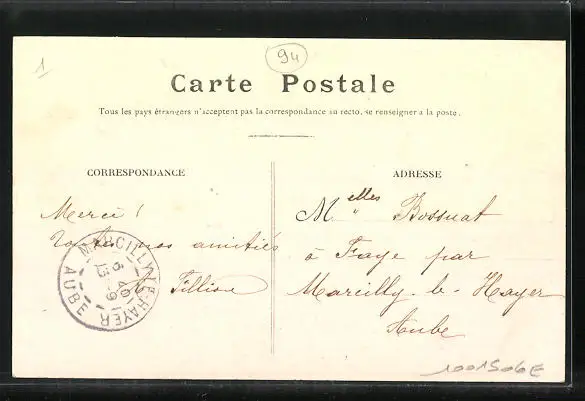 1
94
Carte Postale
Tous les pays étrangers n'acceptent pas la correspondance au recto, se renseigner à la poste.
CORRESPONDANCE
Merci !
Toutes nos amitiés
Tillion
MARCILLY-LE-HAYER
AUBE
ADRESSE
Melles Bossuat
à Faye par
Marcilly-le-Hayer
Aube
1001506E